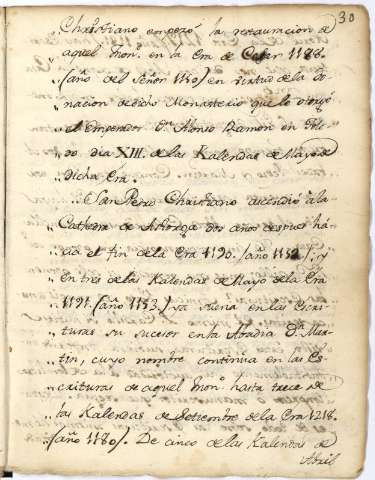 30
Christiano empezó la restauracion de
„ aquel Mon.º en la Era de Cesar 1188.
„ (año del Señor 1150) en virtud de la do-
„ nacion de dicho Monasterio que le otorgó
„ el Emperador D.n Alonso Ramon en
„ dia XIII. de las Kalendas de Mayo de
„ dicha Era.
„ San Pedro Christiano ascendió a la
„ Cathedra de Astorga dos años despues há-
„ cia el fin de la Era 1190. (año 1152): y
„ en tres de las Kalendas de Mayo de la Era
„ 1191. (año 1153.) ya suena en las Escri-
„ turas su sucesor en la Abadia D.n Mar-
„ tin, cuyo nombre continúa en las Es-
„ crituras de aquel Mon.º hasta trece de
„ las Kalendas de Setiembre de la Era 1218.
„ (año 1180). De cinco de las Kalendas de
Abril